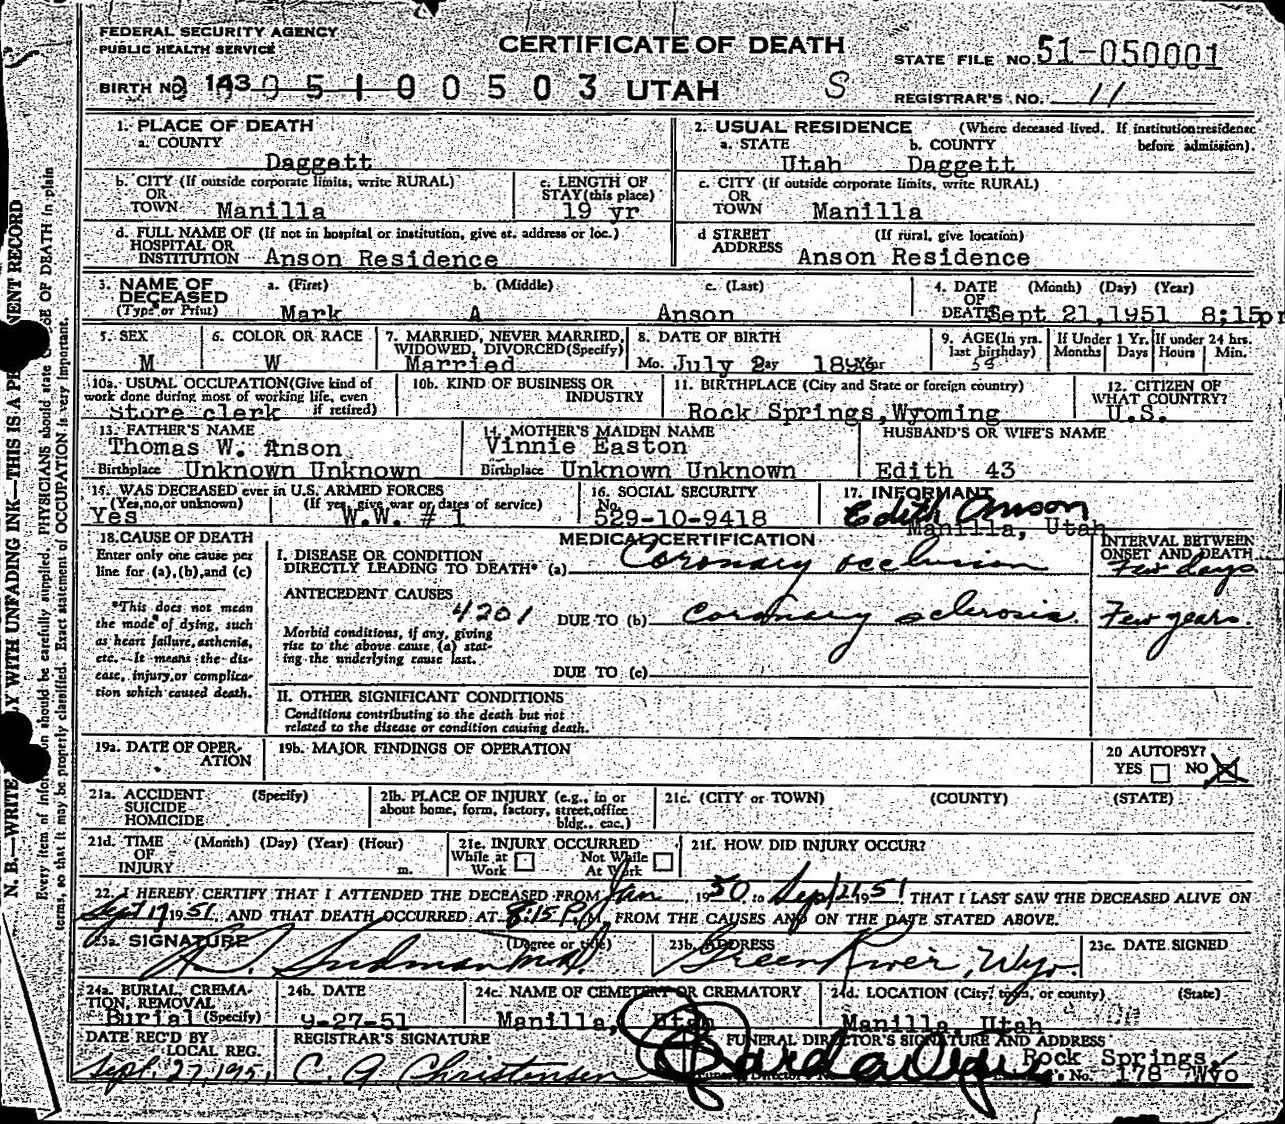 FEDERAL SECURITY AGENCY
PUBLIC HEALTH SERVICE
CERTIFICATE OF DEATH
STATE FILE NO. 51-050001
BIRTH NO. 143 0 5 1 0 0 5 0 3 UTAH S
REGISTRAR'S NO. 11
1. PLACE OF DEATH
a. COUNTY
Daggett
2. USUAL RESIDENCE (Where deceased lived. If institution: residence before admission).
a. STATE b. COUNTY
Utah Daggett
b. CITY (If outside corporate limits, write RURAL)
OR
TOWN Manilla
c. LENGTH OF
STAY (this place)
19 yr
c. CITY (If outside corporate limits, write RURAL)
OR
TOWN Manilla
d. FULL NAME OF (If not in hospital or institution, give st. address or loc.)
HOSPITAL OR
INSTITUTION Anson Residence
d STREET (If rural, give location)
ADDRESS Anson Residence
3. NAME OF DECEASED
(Type or Print)
a. (First) b. (Middle) c. (Last)
Mark A Anson
4. DATE OF DEATH (Month) (Day) (Year)
Sept 21, 1951 8:15pm
5. SEX
M
6. COLOR OR RACE
W
7. MARRIED, NEVER MARRIED,
WIDOWED, DIVORCED (Specify)
Married
8. DATE OF BIRTH
Mo. July 2
9. AGE (In yrs.
last birthday)
If Under 1 Yr.
Months Days
If under 24 hrs.
Hours Min.
10a. USUAL OCCUPATION (Give kind of
work done during most of working life, even
if retired)
Store clerk
10b. KIND OF BUSINESS OR
INDUSTRY
11. BIRTHPLACE (City and State or foreign country)
Rock Springs, Wyoming
12. CITIZEN OF
WHAT COUNTRY?
U.S.
13. FATHER'S NAME
Thomas W. Anson
Birthplace Unknown Unknown
14. MOTHER'S MAIDEN NAME
Vinnie Easton
Birthplace Unknown Unknown
HUSBAND'S OR WIFE'S NAME
Edith 43
15. WAS DECEASED ever in U.S. ARMED FORCES
(Yes, no, or unknown) (If yes, give war or dates of service)
Yes W.W. # 1
16. SOCIAL SECURITY
No.
529-10-9418
17. INFORMANT
Edith Anson
Manilla, Utah
18. CAUSE OF DEATH
Enter only one cause per
line for (a), (b), and (c)
*This does not mean
the mode of dying, such
as heart failure, asthenia,
etc. It means the dis-
ease, injury, or complica-
tion which caused death.
MEDICAL CERTIFICATION
INTERVAL BETWEEN
ONSET AND DEATH
I. DISEASE OR CONDITION
DIRECTLY LEADING TO DEATH* (a) Coronary occlusion Few days
ANTECEDENT CAUSES
4201
DUE TO (b) Coronary sclerosis. Few years.
Morbid conditions, if any, giving
rise to the above cause (a) stat-
ing the underlying cause last.
DUE TO (c)
II. OTHER SIGNIFICANT CONDITIONS
Conditions contributing to the death but not
related to the disease or condition causing death.
19a. DATE OF OPER-
ATION
19b. MAJOR FINDINGS OF OPERATION
20 AUTOPSY?
YES NO X
21a. ACCIDENT (Specify)
SUICIDE
HOMICIDE
21b. PLACE OF INJURY (e.g., in or
about home, form, factory, street, office
bldg., etc.)
21c. (CITY or TOWN) (COUNTY) (STATE)
21d. TIME (Month) (Day) (Year) (Hour)
OF
INJURY m.
21e. INJURY OCCURRED
While at Work
Not While At Work
21f. HOW DID INJURY OCCUR?
22. I HEREBY CERTIFY THAT I ATTENDED THE DECEASED FROM Jan 1950 to Sept 21 1951 THAT I LAST SAW THE DECEASED ALIVE ON
Sept 17 1951, AND THAT DEATH OCCURRED AT 8:15 P.M. FROM THE CAUSES AND ON THE DATE STATED ABOVE.
23a. SIGNATURE (Degree or title)
M.D.
23b. ADDRESS
Green River, Wyo.
23c. DATE SIGNED
24a. BURIAL, CREMA-
TION, REMOVAL
(Specify)
Burial
24b. DATE
9-27-51
24c. NAME OF CEMETERY OR CREMATORY
Manilla, Utah
24d. LOCATION (City, town, or county) (State)
Manilla, Utah
DATE REC'D BY
LOCAL REG.
Sept. 27, 1951
REGISTRAR'S SIGNATURE
C. A. Christensen
FUNERAL DIRECTOR'S SIGNATURE AND ADDRESS
Rock Springs,
No. 178 Wyo